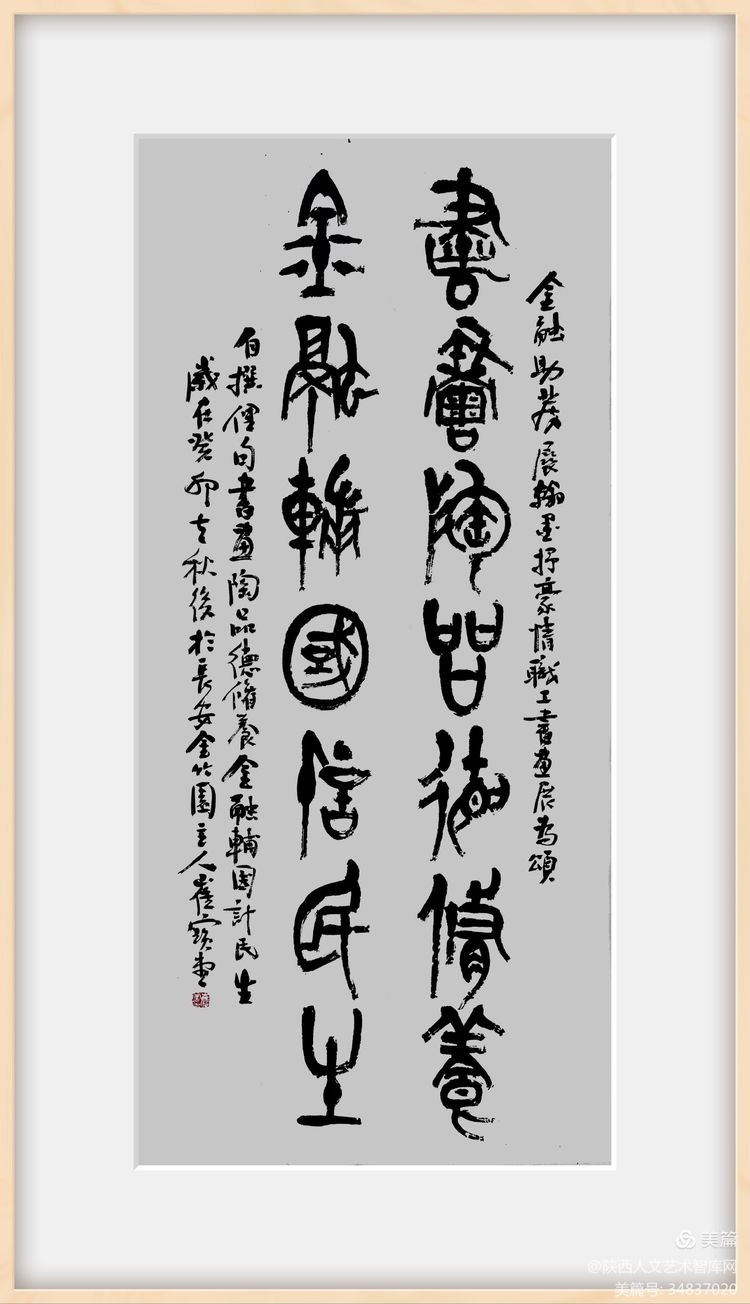 金融助發展翰墨抒豪情職工書畫展為頌
書畫陶品德脩養
金融輔國計民生
自撰俚句書畫陶品德脩養金融輔國計民生
歲在癸卯立秋後於長安金竹園主人崔寶堂
美篇
@陕西人文艺术智库网
美篇号: 34837020